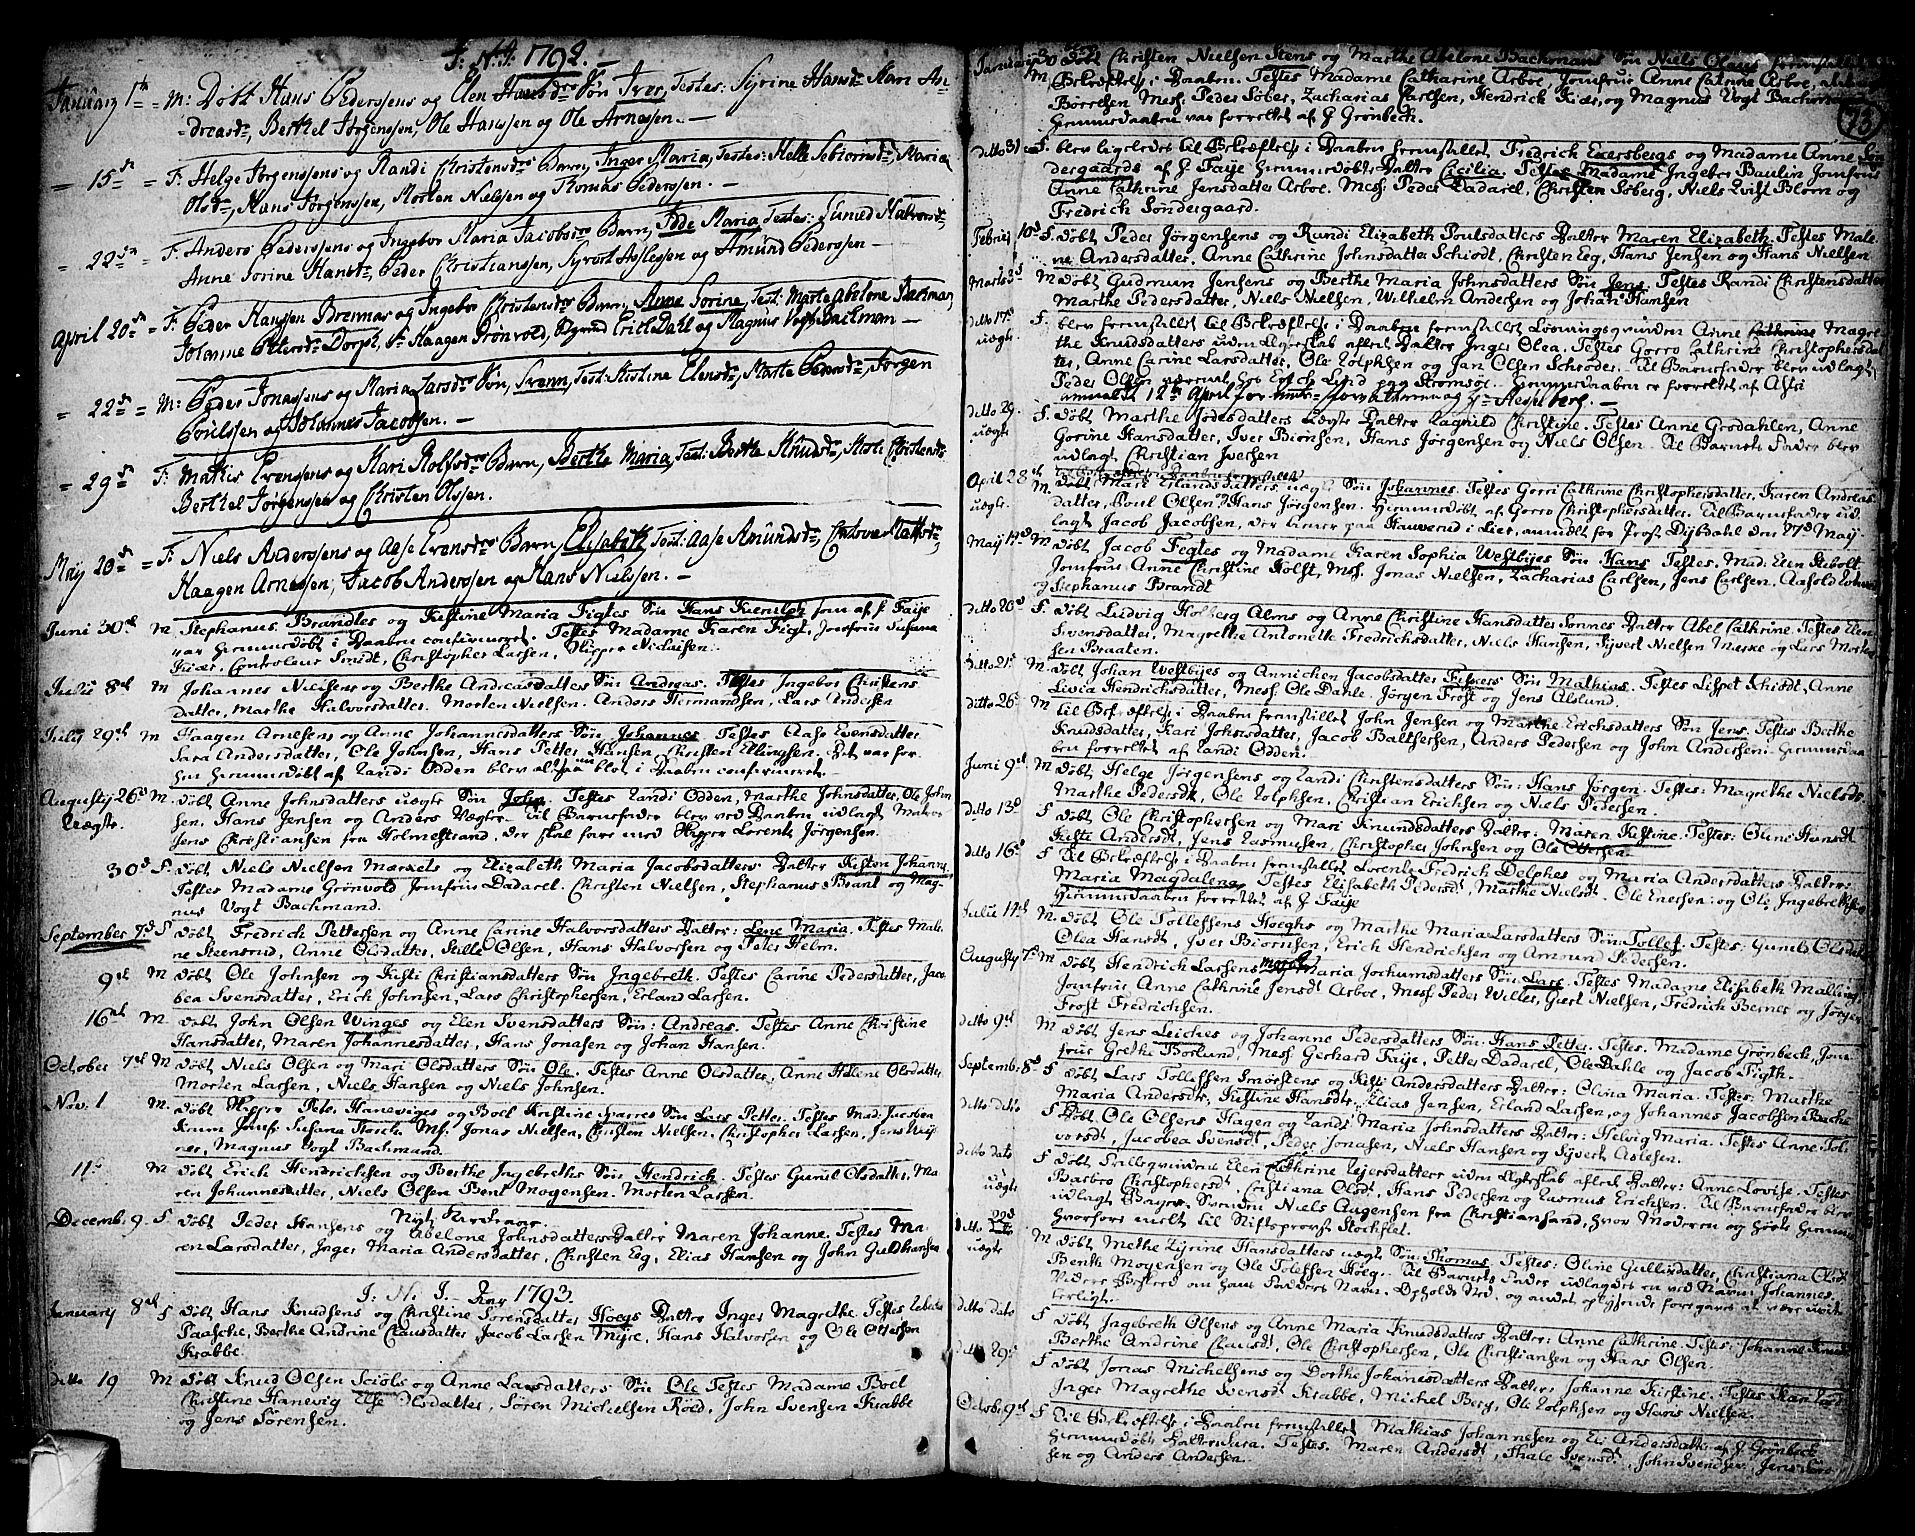 J: N: J: 1792. —
January 1te = M: Döbt Hans Pedersens og Elen Hansdrs Søn Iver, Testes: Syrine Hansdr Mari An-
-dreasdr, Berthel Jørgenssen, Ole Hanssen og Ole Arnessen. —
= 15de = F: Helge Jørgenssens og Randi Christensdrs Barn, Inger Maria, Testes: Helle Maria
Olsdr, Hans Jørgenssen, Morten Nielssen og Thomas Pederssen. —
= 22de = F: Anders Pederssens og Ingebor Maria Jacobsdrs Barn, Idde Maria, Testes: Gunild Halvorsdr,
Anne Sorine Hansdr, Peder Christianssen, Syvert Aslessen og Amund Pederssen —
April 20de F: Peder Hanssen Brennas og Ingebor Christensdrs Barn, Anne Sorine, Test: Marte Abelone Backman,
Johanne Pettersdr Dorph, Sr Haagen Grönvold, Dahl og Magnus Vogt Backman —
= 22de = M: Peder Jonassens og Maria Larsdrs Søn, Svenn, Test: Kistine Elensdr, Marte Pedersdr, Jørgen
Poulssen og Johannes Jacobsen. —
= 29de = F: Mathis Evenssens og Kari Rolfsdrs Barn, Berthe Maria, Test: Berthe Knudsdr, Christensdr
Berthel Jørgenssen og Christen Olssen.
May 20de = F: Niels Anderssens og Aase Evensdrs Barn, Elisabeth Test: Aase Amundsdr,
Haagen Arnessen, Jacob Anderssen og Hans Nielssen. —
Juni 30te M Stephanus Brandtes og Kistine Maria Figtes Søn Hans Kierulph som af J. Faye
var hiemmedöbt i Daaben confirmeret. Testes Madame Karen Figt, Jomfrue Susana
Kiær. Controleur Smidt, Christopher Larsen, Skipper Nielsen.
Julii 8de M Johannes Nielsens og Berthe Andreasdatters Søn Andreas. Testes Ingebor Christens
datter, Marthe Halvorsdatter. Morten Nielsen. Anders Hermandsen, Lars Andersen
Julij 29de M Haagen Arnesens og Anne Johannesdatters Søn Johannes Testes Aase Evensdatter.
Sara Andersdatter, Ole Johnsen, Hans Petter Hansen, Christen Ellingsen. Det var for
hen hiemmedöbt af Randi Odden blev altsaa nu blot i Daaben confirmeret.
Augustij 26de M. döbt Anne Johnsdatters uægte Søn John. Testes Randi Odden, Marthe Johnsdatter, Ole John
Uægte. sen. Hans Jensen og Anders Vegter. Til Barnefader blev ved Daaben udlagt Matros
Jens Christiansen fra Holmestrand, der skal fare med Skipper Lorentz Jörgensen.
30de F. döbt Niels Nielsen Morsels og Elizabeth Maria Jacobsdatters Datter Kisten Johanna
Testes Madame Grönvold Jomfrue Dadarel. Christen Nielsen, Stephanus Brant og Mag-
nus Vogt Bachmand.
September 7de F döbt Fredrich Pettersen og Anne Carine Halvorsdatters Datter: Lene Maria. Testes Male
ne Steensrud, Anne Olsdatter, Helle Olsen, Hans Halvorsen og Peter Helm.
9de M döbt Ole Johnsen og Kisti Christiansdatters Søn Ingebreth. Testes Carine Pedersdatter, Jac
bea Svensdatter, Erich Johnsen, Lars Christophersen, Erland Larsen.
16de M. döbt John Olsen Winges og Elen Svensdatters Søn: Andreas. Testes Anne Christine
Hansdatter, Maren Johannesdatter, Hans Jonasen og Johan Hansen.
October 7de M döbt Niels Olsen og Mari Olsdatters Søn Ole. Testes Anne Olsdatter, Anne Helene Olsdatter
Morten Larsen, Niels Hansen og Niels Johnsen.
Nov. 1 M. döbt Skipper Peter Haneviges og Boel Kirstine Sparres Søn Lars Petter. Testes Mad: Jacobea
Krum Jomf: Susana Mf: Jonas Nielsen, Christen Nielsen, Christopher Larsen, Jens
ner, Magnus Vogt Bachmand.
11te M döbt Erich Hendrichsen og Berthe Ingebreths Søn Hendrich. Testes Gunil Olsdatter, Ma
ren Johannesdatter, Niels Olsen Bent Mogensen. Morten Larsen.
Decemb. 9. F döbt Peder Hansens og Abelone Johnsdatters Datter Maren Johanne. Testes Ma-
ren Larsdatter, Inger Maria Andersdatter, Christen Eeg, Elias Hansen og John Guldhansen
J: N: J. Anno 1793.
January 8de F döbt Hans Knudsens og Christine Sørensdatter Hoegs Datter Inger Magrethe. Testes
Paaske, Berthe Andrine Clausdatter, Jacob Larsen Myre, Hans Halvorsen og Ole Ottersen
Krabbe.
ditto 19 M döbt Knud Olsen Sciols og Anne Larsdatters Søn Ole Testes Madame Boel
Christine Hanevig Else Olsdatter, Sören Michelsen Röed, John Svensen Krabbe
og Jens Sörensen.
Januarij 30 döbt Christen Nielsen Stens og Marthe Abelone Bachmans Søn Niels Claus
M Bekræftelse i Daaben. Testes Madame Catharine Arboe, Jomfrue Anne Catrine Arboe,
Börresen Mess. Peder Söber, Zacharias Carlsen, Hendrick Kiær, og Magnus Vogt Bachman
hiemmedaaben var forrettet af J Grönbeck. 73
ditto 31 F. blev ligeledes til Bekræftelse i Daaben fremstillet Fredrich Eversbergs og Madame Anne Søn
dergaards af J Faye hiemmedöbt Datter Cecilia. Testes Madame Ingebor Paulin Jomfrue
Anne Cathrine Jensdatter Arboe. Mess. Peder Dadarel, Christen Söberg, Niels Qvist Blom og
Fredrich Søndergaard.
Februarij 10de F. döbt Peder Jörgensens og Rundi Elizabeth Poulsdatters Datter Maren Elizabeth. Testes Male
ne Andersdatter. Anne Cathrine Johnsdatter Schiödt, Christen Eeg, Hans Jensen og Hans Nielsen
Marts 3de M döbt Gudmun Jensens og Berthe Maria Johnsdatters Søn Jens Testes Randi Christensdatter
Marthe Pedersdatter, Niels Nielsen, Wilhelm Andersen og Johan Hansen
ditto 17de F. blev fremstillet til Bekræftelse i Daaben fremstillet Løsningsqvinden Anne Cathrine Magre
uægte the Knudsdatters uden Ægteskab aflede Datter Inger Olea. Testes Gorro Cathrine Christophersdat
ter, Anne Carine Larsdatter, Ole Rolphsen og Jan Olsen Schröder. Til Barnefader blev udlagt
Peder Olsen værende hos Erich Lund paa Strömsöe. Hiemmedaaben er forrettet af Asti
anmeldt 12te April for
ditto 29. F. döbt Marthe Jodesdatters Uægte Datter Ragnild Christine. Testes Anne Grodahlen, Anne
uægte Gorine Hansdatter, Iver Biönsen, Hans Jörgensen og Niels Olsen. Til Barnets Fader blev
udlagt Christian Iversen
til Bekræftelse i Daaben fremstillet
April 28de M. döbt Mari Elandsdatters uægte Søn Johannes. Testes Gorri Cathrine Christophersdatter, Karen Andreas
uægte. datter, Poul Olsen og Hans Jörgensen. Hiemmedöbt af Gorro Christophersdatter. Til Barnefader ud
lagt Jacob Jacobsen, der tiener paa Hauverud i Lier, anmeldt for Prost Dybdahl den 27de Maij.
Maij 19de M döbt Jacob Fegtes og Madame Karen Sophia Westbijes Søn Hans Testes. Mad. Elen Stebolt
Jomfrue Anne Christine Holst, Mess. Jonas Nielsen, Zacharias Carlsen, Jens Carlsen. Aasold
og Stephanus Brandt
ditto 20de F. döbt Ludvig Holberg Alms og Anne Christine Hansdatter Sonnes Datter Abel Cathrine. Testes Elen
Svensdatter, Magrethe Antonette Fredrichsdatter, Niels Hansen, Syvert Nielsen Merke og Lars Morten
sen Braaten.
ditto 21de M. döbt Johan Westbyes og Annichen Jacobsdatter Fiskers Søn Mathias. Testes Lispet Schiödt, Anne
Livia Hendrichsdatter, Mess. Ole Dahle. Jörgen Frost og Jens Alslund.
ditto 26de M til Bekræftelse i Daaben fremstillet John Jensen og Marthe Erichsdatters Søn Jens. Testes Berthe
Knudsdatter, Kari Johnsdatter, Jacob Balthersen, Anders Pedersen og John Andersen. Hiemmedaa
ben forrettet af Randi Odden.
Juni 9de M döbt Helge Jörgensens og Randi Christensdatters Søn: Hans Jörgen. Testes: Magrethe Nielsdr
Marthe Pedersdr, Ole Rolphsen, Christian Erichsen og Niels Pedersen.
ditto 13de F döbt Ole Christophersen og Mari Knudsdatters Datter: Maren Kistine. Testes: Oline Hansdr
Kisti Andersdr, Jens Rasmusen, Christopher Johnsen og Ole Ottersen.
ditto 16de F til Bekræftelse i Daaben fremstillet Lorentz Fredrich Delphes og Maria Andersdatters Datter:
Maria Magdalena. Testes Elisabeth Pedersdr Marthe Nielsdr. Ole Enersen og Ole Ingebrethsen
Hiemmedaaben forrettet af J Faye
Julii 14de M. döbt Ole Tollefsens Hoeghs og Marthe Maria Larsdatters Søn: Tollef. Testes: Gunild Olsdatter
Olea Hansdr, Iver Biörnsen, Erich Hendrichsen og Amund Pedersen.
Augustij 7de M döbt Hendrich Larsens og Maria Jochumsdatters Søn: Lars. Testes Madame Elisabeth Malling
Jomfrue Anne Cathrine Jensdr Arboe, Mess. Peder Willer, Giert Nielsen, Fredrich Berner og Jörgen
Frost Fredrichsen.
ditto 9de M döbt Jens Leiches og Johanne Pedersdatters Søn: Hans Petter. Testes. Madame Grönbeck, Jom-
frue Grethe Borlund, Mess Gerhard Faye, Petter Dadarel, Ole Dahle og Jacob Figth.
Septemb. 8de F döbt Lars Tollefsen Smörstens og Kisti Andersdatters Datter: Olina Maria. Testes: Marthe
Maria Andersdr, Kistine Hansdr. Elias Jensen, Erland Larsen og Johannes Jacobsen Bache
ditto ditto F döbt Ole Olsens Hagen og Randi Maria Johnsdatters Datter: Helvig Maria. Testes Anne Tol-
vorsdr, Jacobea Svensdr Peder Jonasen, Niels Hansen og Syvert Aslesen.
ditto dato F döbt Stillesqvinden Elen Cathrine Reiersdatters uden Ægteskab aflede Datter: Anne Lovise. Testes
uægte Barbro Christophersdr, Cristiana Olsdr, Hans Pedersen og Rasmus Erichsen. Til Barnefader blev
udlagt Bager Svenden Niels Augensen fra Christiansand,
hvorfore meldt til Stiftsprovst Stockflet.
ditto 22de M döbt Mette Zyrine Hansdatters uægte Søn: Thomas. Testes: Oline Gullixdatter, Christiana Olsdr
uægte Benth Mogensen og Ole Tolefsen Höeg. Til Barnets Fader udlagdes en ved Navn Johannes.
Videre Beskeed om hans Faders Navn, Opholds Sted, og andet oplysende foregaves at være uvit
terligt.
ditto dato F döbt Ingebreth Olsens og Anne Maria Knudsdatters Datter: Anne Cathrine. Testes: Johanne Knudsdr
Berthe Andrine Clausdr, Ole Christophersen, Ole Christiansen og Hans Olsen.
ditto 29de F döbt Jonas Michelsens og Dorthe Johanesdatters Datter: Johanne Kirstine. Testes Kari
Inger Magrethe Svensdr Krabbe, Michel Berg, Ole Rolphsen og Hans Nielsen.
October 9de F til Bekræftelse i Daaben fremstillet Mathias Johannesen og Eli Andersdatter af J. Grönbeck
hiemmedöbt Datter Sara. Testes. Maren Andersdr, Thale Svensdr, John Svendsen, Jens
sen og Anders Andersen.